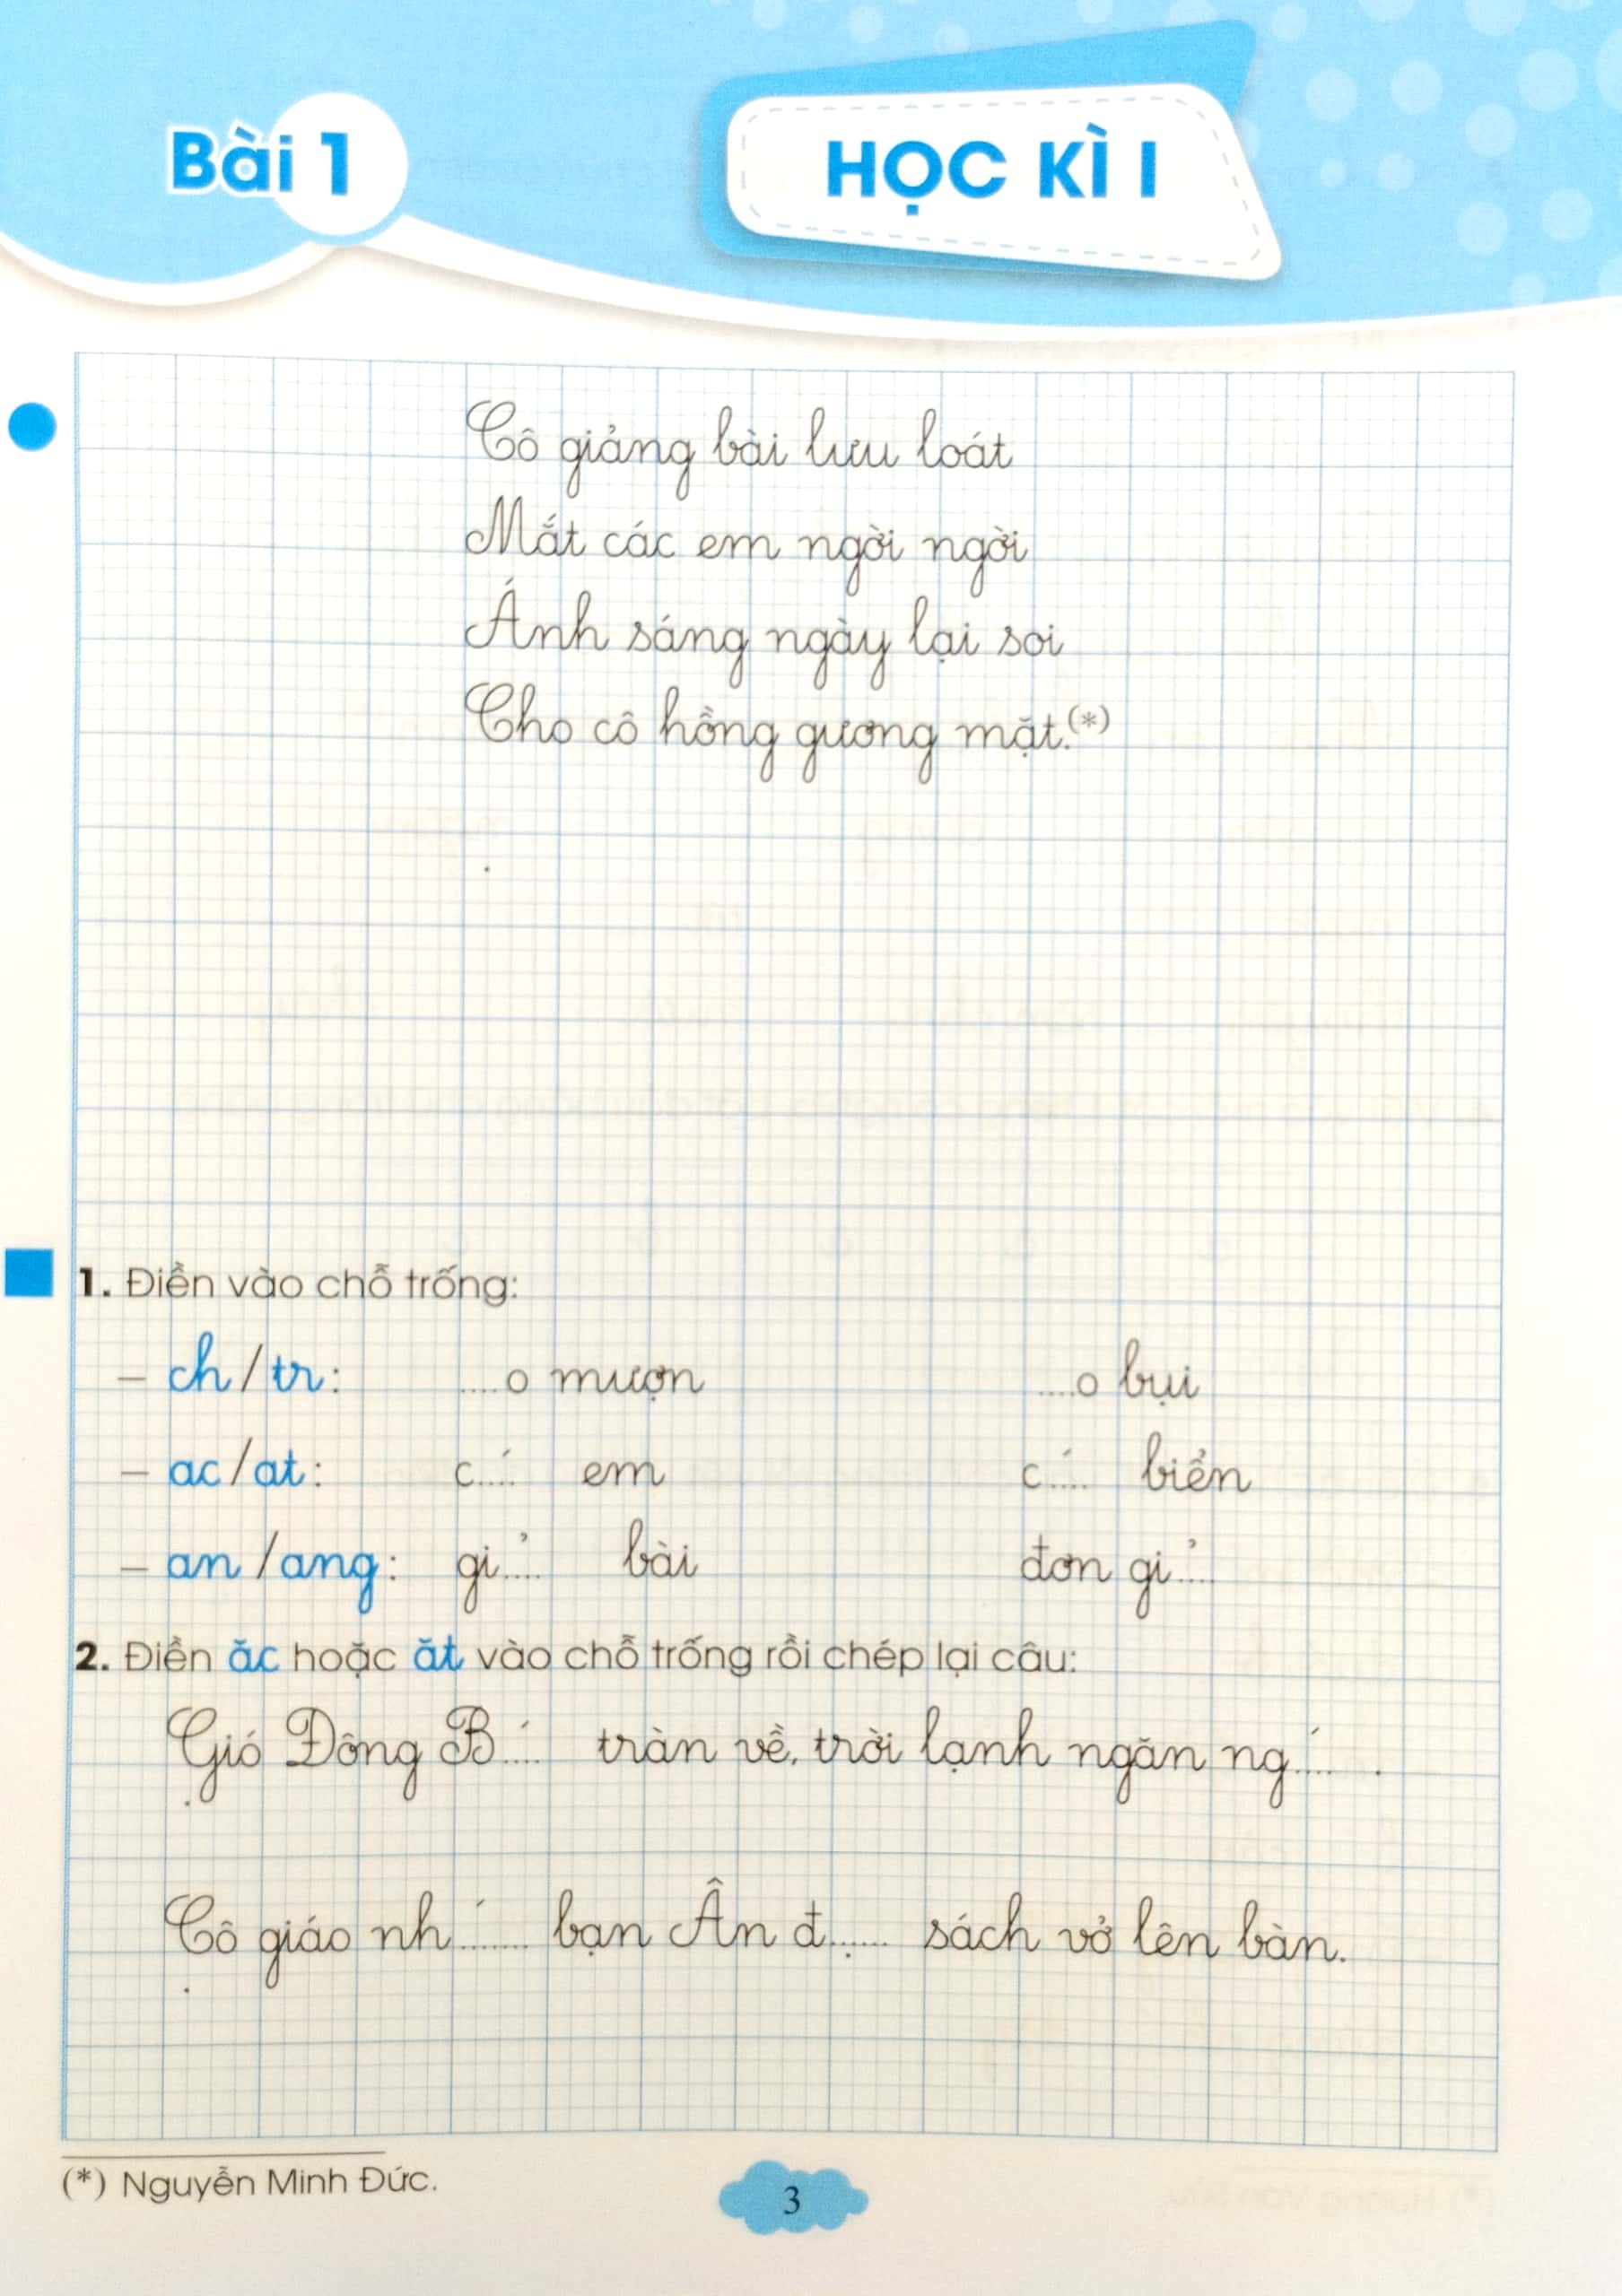 Bài 1
HỌC KÌ I
Cô giảng bài lưu loát
Mắt các em ngời ngời
Ánh sáng ngày lại soi
Cho cô hồng gương mặt.(*)
1. Điền vào chỗ trống:
– ch/tr: ....o mượn ....o bụi
– ac/at: c....́ em c....́ biển
– an/ang: gi....̉ bài đơn gi....̉
2. Điền ăc hoặc ăt vào chỗ trống rồi chép lại câu:
Gió Đông B....́ tràn về, trời lạnh ngăn ng....́ .
Cô giáo nh.......́ bạn Ân đ......̣ sách vở lên bàn.
(*) Nguyễn Minh Đức.
3